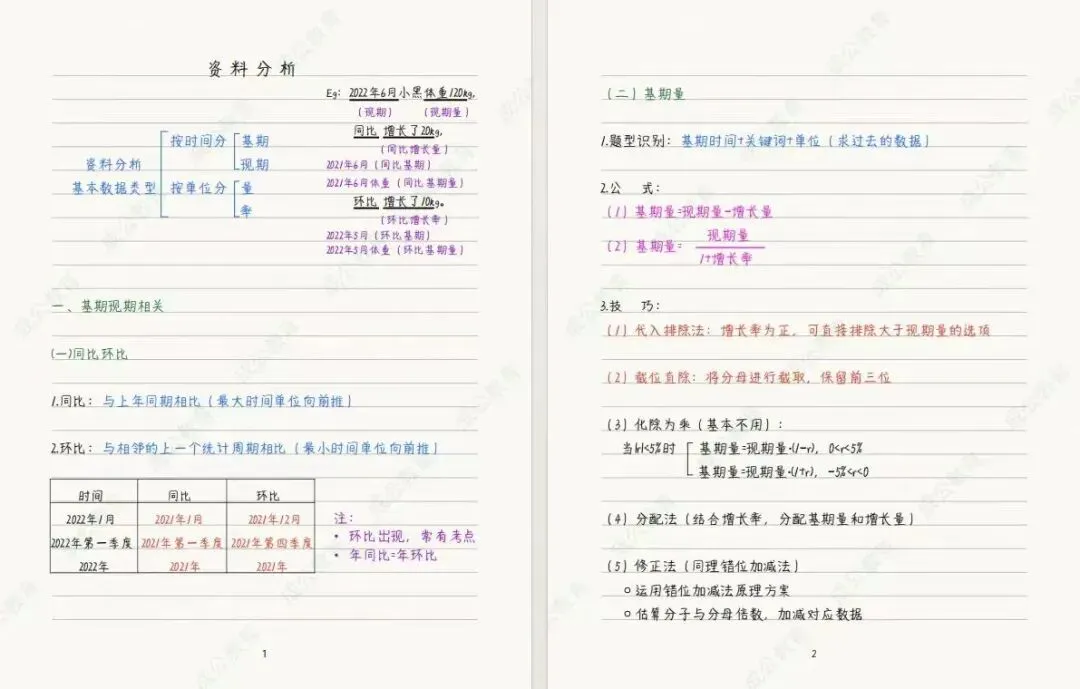 资料分析
Eg：2022年6月小黑体重120kg，
（现期）（现期量）
同比 增长了20kg，
（同比增长量）
2021年6月（同比基期）
2021年6月体重（同比基期量）
环比 增长了10kg。
（环比增长率）
2022年5月（环比基期）
2022年5月体重（环比基期量）
资料分析
基本数据类型
按时间分
基期
现期
按单位分
量
率
一、基期现期相关
(一)同比环比
1.同比：与上年同期相比（最大时间单位向前推）
2.环比：与相邻的上一个统计周期相比（最小时间单位向前推）
时间 同比 环比
2022年1月 2021年1月 2021年12月
2022年第一季度 2021年第一季度 2021年第四季度
2022年 2021年 2021年
注：
• 环比出现，常有考点
• 年同比=年环比
1
（二）基期量
1.题型识别：基期时间+关键词+单位（求过去的数据）
2.公 式：
（1）基期量=现期量-增长量
（2）基期量= 现期量
1+增长率
3.技 巧：
（1）代入排除法：增长率为正，可直接排除大于现期量的选项
（2）截位直除：将分母进行截取，保留前三位
（3）化除为乘（基本不用）：
当|r|<5%时
基期量=现期量·(1-r)，0<r<5%
基期量=现期量·(1+r)，-5%<r<0
（4）分配法（结合增长率，分配基期量和增长量）
（5）修正法（同理错位加减法）
○运用错位加减法原理方案
○估算分子与分母倍数，加减对应数据
2